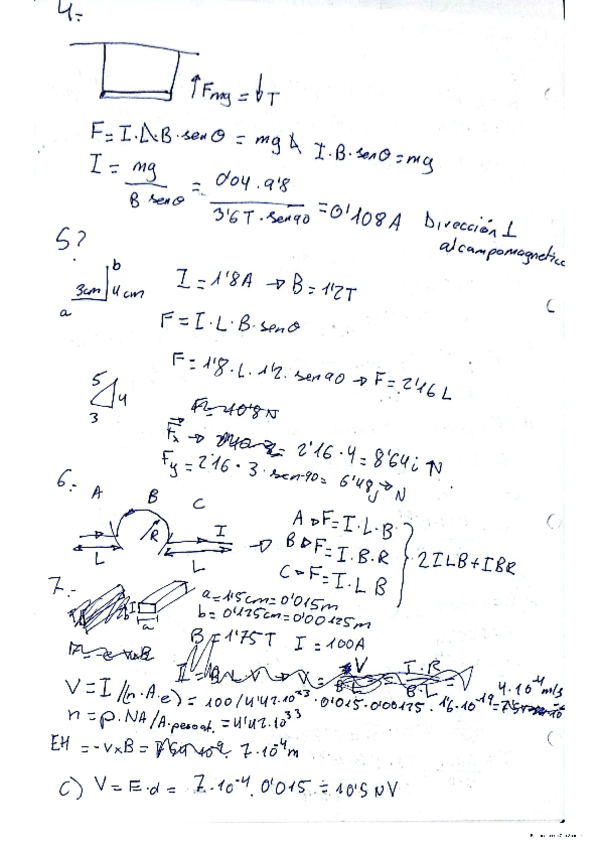 4.-
↑Fmg = ↓T
F = I·L·B·senθ = mg L I·B·senθ = mg
I = mg / B senθ = 0'04·9'8 / 3'6T·sen90 = 0'108A Dirección ⊥
al campo magnetico
5?
b
3cm 4cm
a
I = 1'8A → B = 1'2T
F = I·L·B·senθ
F = 1'8·L·1'2·sen90 → F = 2'16L
5
4
3
F = 10'8N
Fx → = 2'16·4 = 8'64i N
Fy = 2'16·3·sen90 = 6'48j N
6.-
A B C
R I
L L
A → F = I·L·B
B → F = I·B·R
C → F = I·L B
2ILB + IBR
7.-
b I
a
a = 1'5cm = 0'015m
b = 0'125cm = 0'00125m
B = 1'75T I = 100A
V = I/(n·A·e) = 100/4'42·10²³·0'015·0'00125·1'6·10⁻¹⁹ = 4·10⁻⁴ m/s
n = ρ·NA/A·pesoat. = 4'42·10³³
EH = -v×B = 7·10⁻⁴m
c) V = E·d = 7·10⁻⁴·0'015 = 10'5 NV